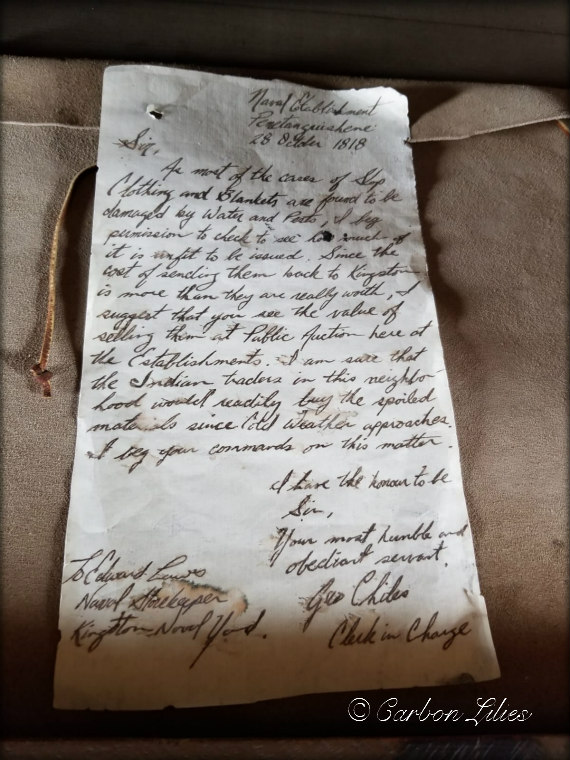 Naval Establishment
Penetanguishene
28 October 1818
Sir,
As most of the cases of Slop
Clothing and Blankets are found to be
damaged by Water and Posts, I beg
permission to check to see how much of
it is unfit to be issued. Since the
cost of sending them back to Kingston
is more than they are really worth, I
suggest that you see the value of
selling them at Public Auction here at
the Establishments. I am sure that
the Indian traders in this neighbo-
hood would readily buy the spoiled
materials since Cold Weather approaches.
I beg your commands on this matter.
I have the honour to be
Sir,
Your most humble and
obediant servant.
Geo Chiles
Clerk in Charge
To Edward Laws
Naval Storekeeper
Kingston Naval Yard.
© Carbon Lilies